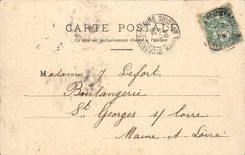 CARTE POSTALE
Ce côté est exclusivement réservé à l'adresse
Madame J Lefort
Boulangerie
St Georges s/ Loire
Maine et Loire